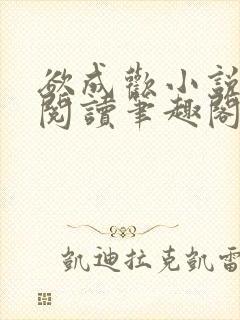 欲成歡小說
閱讀筆趣閣
凱迪拉克凱雷